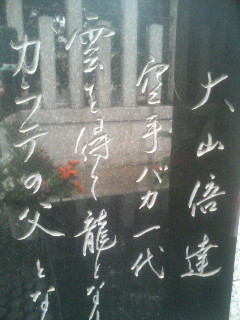 大山倍達
空手バカ一代
雲を得て龍となり
カラテの父とな